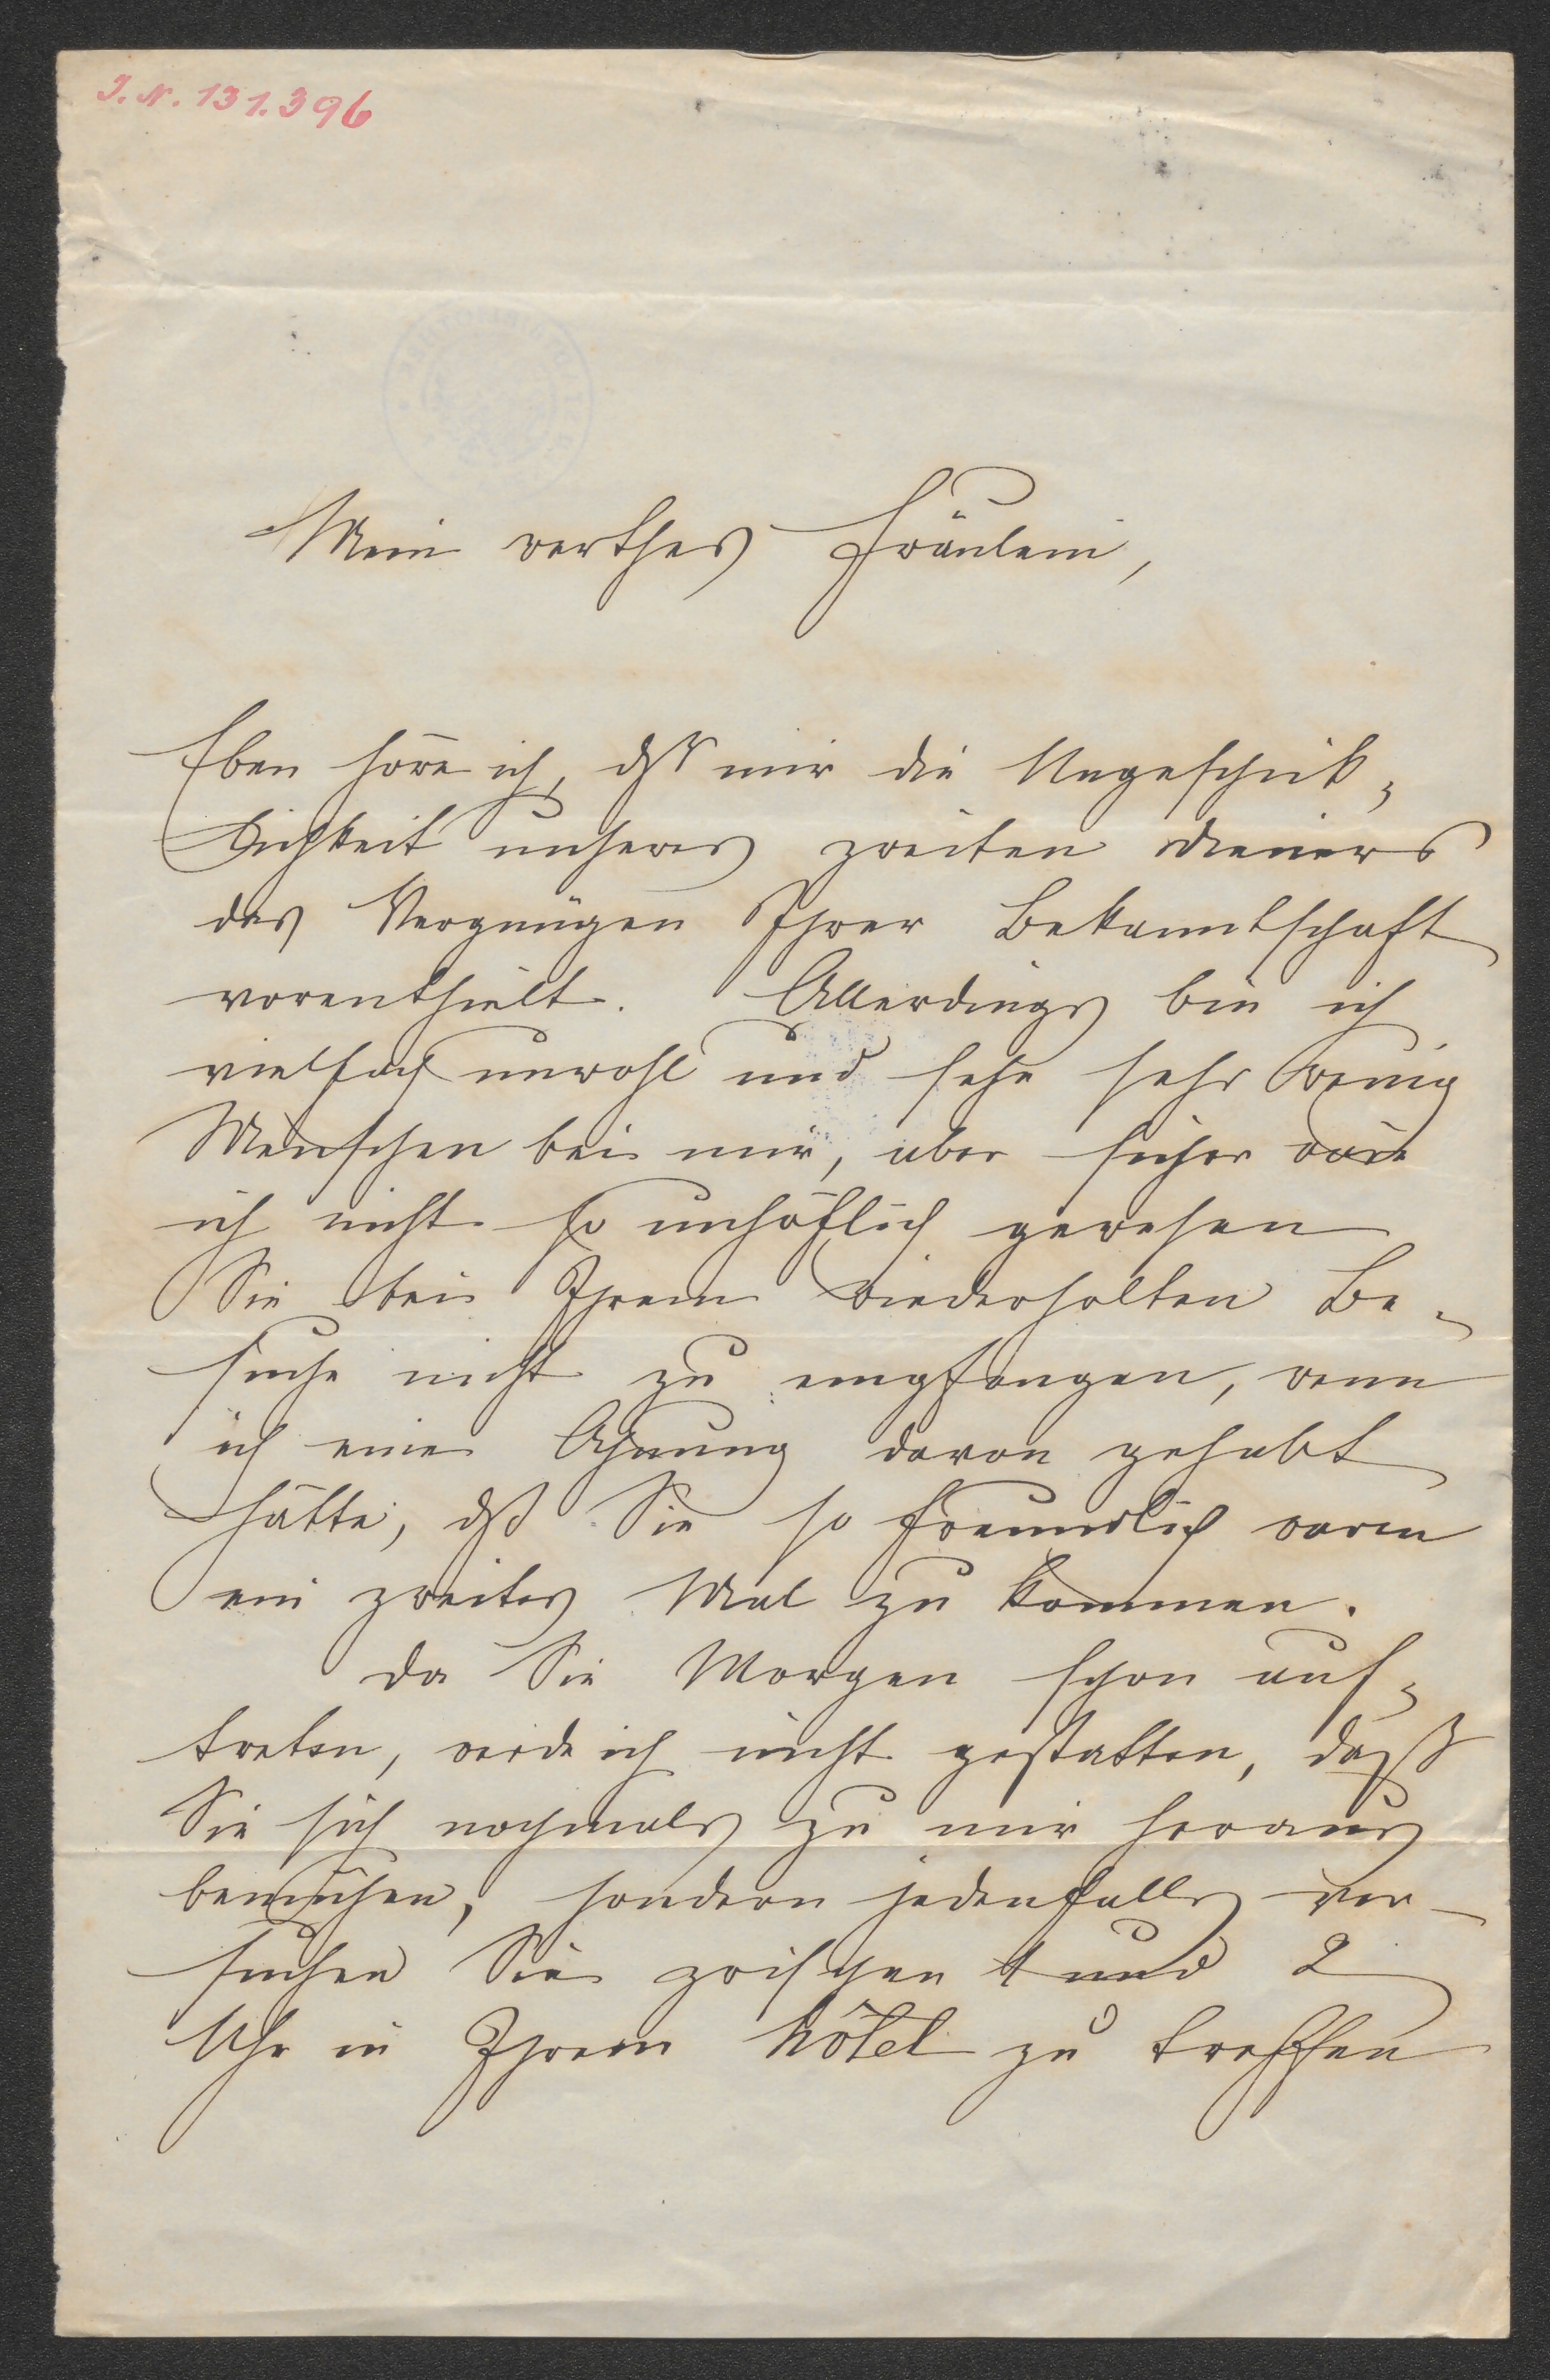 J. N. 131.396
Mein werthes Fräulein,
Eben höre ich, dß mir die Ungeschick,
lichkeit unseres zweiten Dieners
das Vergnügen Ihrer Bekanntschaft
vorenthielt. Allerdings bin ich
vielfach unwohl und sehe sehr wenig
Menschen bei mir, aber sicher wäre
ich nicht so unhöflich gewesen
Sie bei Ihrem wiederholten Be-
suche nicht zu empfangen, wenn
ich eine Ahnung davon gehabt
hätte, dß Sie so freundlich waren
ein zweites Mal zu kommen.
Da Sie Morgen schon auf,
treten, werde ich nicht gestatten, daß
Sie sich nochmals zu mir heraus
bemühen, sondern jedenfalls ver-
suchen Sie zwischen 1 und 2
Uhr in Ihrem Hôtel zu treffen